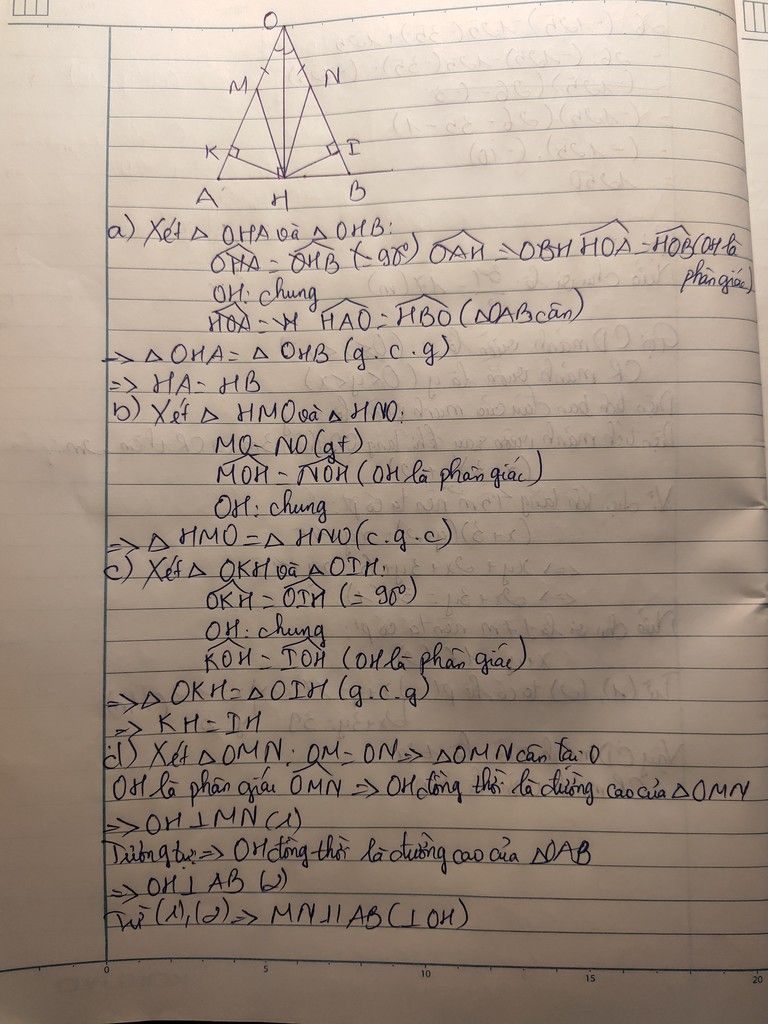 O
M N
K I
A H B
a) Xét △ OHA và △ OHB:
OHA = OHB (= 90°) OAH = OBH HOA = HOB (OH là
phân giác)
OH: chung
HOA = H HAO = HBO (△OAB cân)
=> △ OHA = △ OHB (g.c.g)
=> HA = HB
b) Xét △ HMO và △ HNO:
MO = NO (gt)
MOH = NOH (OH là phân giác)
OH: chung
=> △ HMO = △ HNO (c.g.c)
c) Xét △ OKH và △ OIH:
OKH = OIH (= 90°)
OH: chung
KOH = IOH (OH là phân giác)
=> △ OKH = △ OIH (g.c.g)
=> KH = IH
d) Xét △OMN: OM = ON => △OMN cân tại O
OH là phân giác OMN => OH đồng thời là đường cao của △OMN
=> OH ⊥ MN (1)
Tương tự => OH đồng thời là đường cao của △OAB
=> OH ⊥ AB (2)
Từ (1), (2) => MN // AB (⊥ OH)
0 5 10 15 20